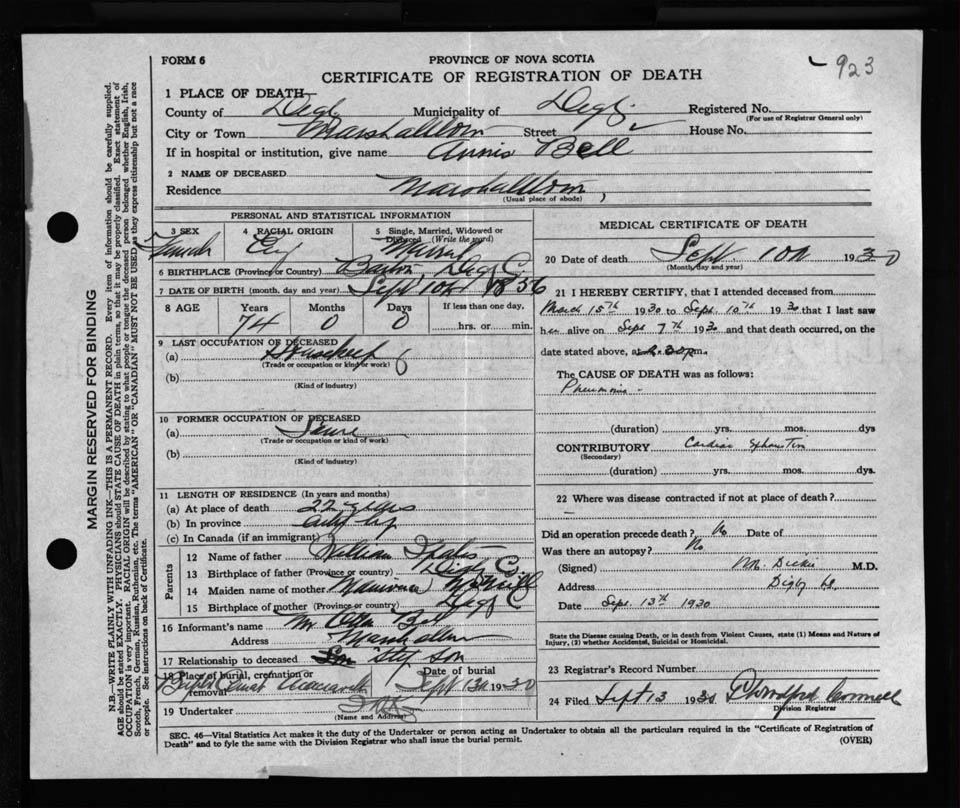 FORM 6
PROVINCE OF NOVA SCOTIA
923
CERTIFICATE OF REGISTRATION OF DEATH
1 PLACE OF DEATH
County of Digby Municipality of Digby Registered No.
(For use of Registrar General only)
City or Town Marshalltown Street House No.
If in hospital or institution, give name Annis Bell
2 NAME OF DECEASED
Residence Marshalltown,
(Usual place of abode)
PERSONAL AND STATISTICAL INFORMATION
3 SEX 4 RACIAL ORIGIN 5 Single, Married, Widowed or Divorced (Write the word)
Female
6 BIRTHPLACE (Province or Country) Digby Co.
7 DATE OF BIRTH (month, day and year) Sept 10th 1856
8 AGE Years Months Days If less than one day,
74 0 0 hrs. or min.
9 LAST OCCUPATION OF DECEASED
(a) Housekeep
(Trade or occupation or kind of work)
(b)
(Kind of industry)
10 FORMER OCCUPATION OF DECEASED
(a) Same
(Trade or occupation or kind of work)
(b)
(Kind of industry)
11 LENGTH OF RESIDENCE (In years and months)
(a) At place of death 22 years
(b) In province
(c) In Canada (if an immigrant)
Parents
12 Name of father William
13 Birthplace of father (Province or country) Digby Co.
14 Maiden name of mother McNeill
15 Birthplace of mother (Province or country) Digby C
16 Informant's name Mr Bell
Address Marshalltown
17 Relationship to deceased Son Step son
18 Place of burial, cremation or removal Date of burial
Sept 13th 1930
19 Undertaker
(Name and Address)
MEDICAL CERTIFICATE OF DEATH
20 Date of death Sept. 10th 1930
(Month, day and year)
21 I HEREBY CERTIFY, that I attended deceased from
March 15th 1930 to Sept. 10th 1930 that I last saw
her alive on Sept 7th 1930 and that death occurred, on the
date stated above, at m.
The CAUSE OF DEATH was as follows:
Pneumonia
(duration) yrs. mos. dys
CONTRIBUTORY Cardiac Exhaustion
(Secondary)
(duration) yrs. mos. dys.
22 Where was disease contracted if not at place of death?
Did an operation precede death? No Date of
Was there an autopsy? No
(Signed) Dickie M.D.
Address Digby
Date Sept. 13th 1930
State the Disease causing Death, or in death from Violent Causes, state (1) Means and Nature of
Injury, (2) whether Accidental, Suicidal or Homicidal.
23 Registrar's Record Number
24 Filed Sept 13 1930
Division Registrar
SEC. 46—Vital Statistics Act makes it the duty of the Undertaker or person acting as Undertaker to obtain all the particulars required in the "Certificate of Registration of
Death" and to fyle the same with the Division Registrar who shall issue the burial permit.
(OVER)
MARGIN RESERVED FOR BINDING
N.B.—WRITE PLAINLY WITH UNFADING INK—THIS IS A PERMANENT RECORD. Every item of information should be carefully supplied.
AGE should be stated EXACTLY. PHYSICIANS should STATE CAUSE OF DEATH in plain terms, so that it may be properly classified. Exact statement of
OCCUPATION is very important. RACIAL ORIGIN will be described by stating to what people or tongue the deceased person belonged whether English, Irish,
Scotch, French, German, Russian, Ruthenian, etc. The terms "AMERICAN" OR "CANADIAN" MUST NOT BE USED as they express citizenship but not a race
or people. See instructions on back of Certificate.